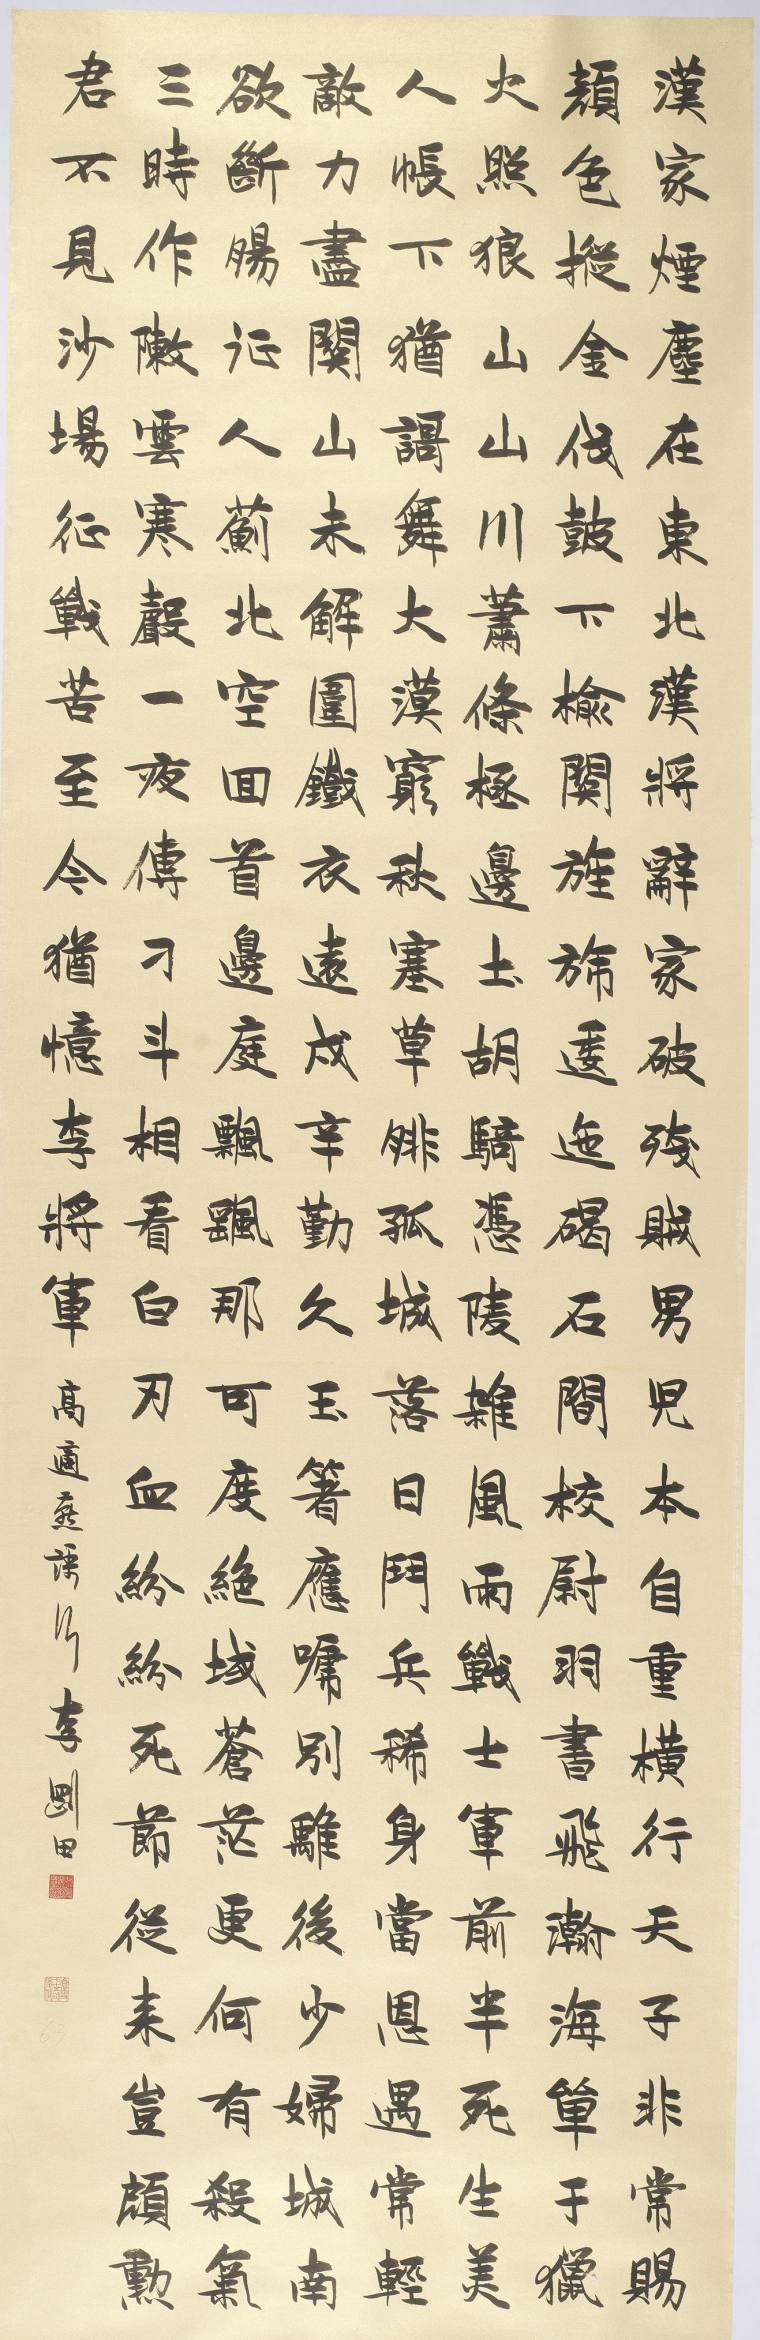 漢家煙塵在東北漢將辭家破殘賊男兒本自重橫行天子非常賜
顏色摐金伐鼓下榆關旌旆逶迤碣石間校尉羽書飛瀚海單于獵
火照狼山山川蕭條極邊土胡騎憑陵雜風雨戰士軍前半死生美
人帳下猶謌舞大漠窮秋塞草腓孤城落日鬥兵稀身當恩遇常輕
敵力盡關山未解圍鐵衣遠戍辛勤久玉箸應嗁別離後少婦城南
欲斷腸征人薊北空回首邊庭飄颻那可度絕域蒼茫更何有殺氣
三時作陣雲寒聲一夜傳刁斗相看白刃血紛紛死節從來豈顧勳
君不見沙場征戰苦至今猶憶李將軍 高適燕謌行 李剛田